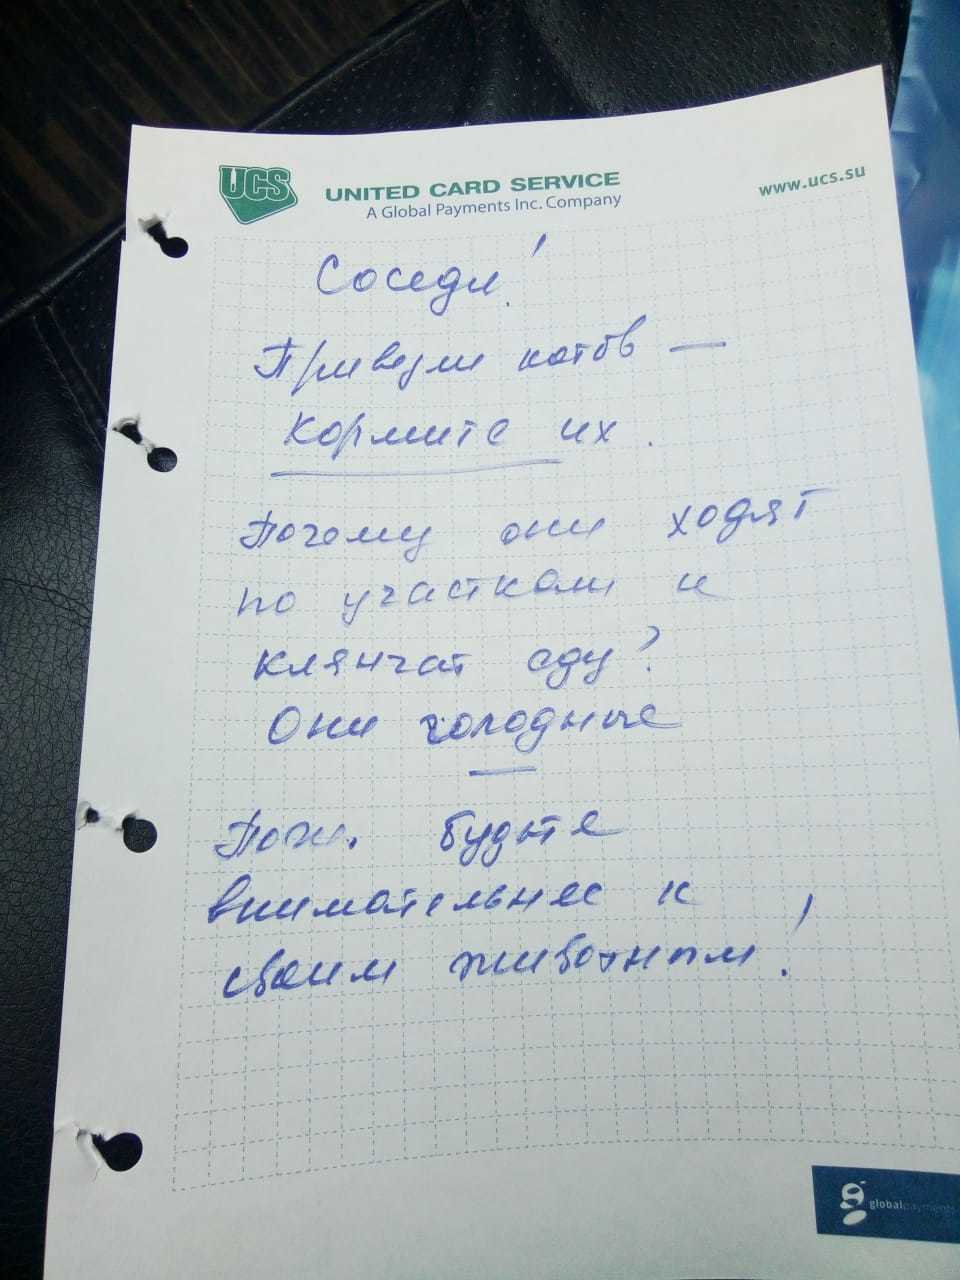 UCS
UNITED CARD SERVICE
A Global Payments Inc. Company
www.ucs.su
Соседи!
Привезли котов —
кормите их.
Почему они ходят
по участкам и
клянчат еду?
Они голодные
Пож. будьте
внимательнее к
своим животным!
globalpayments